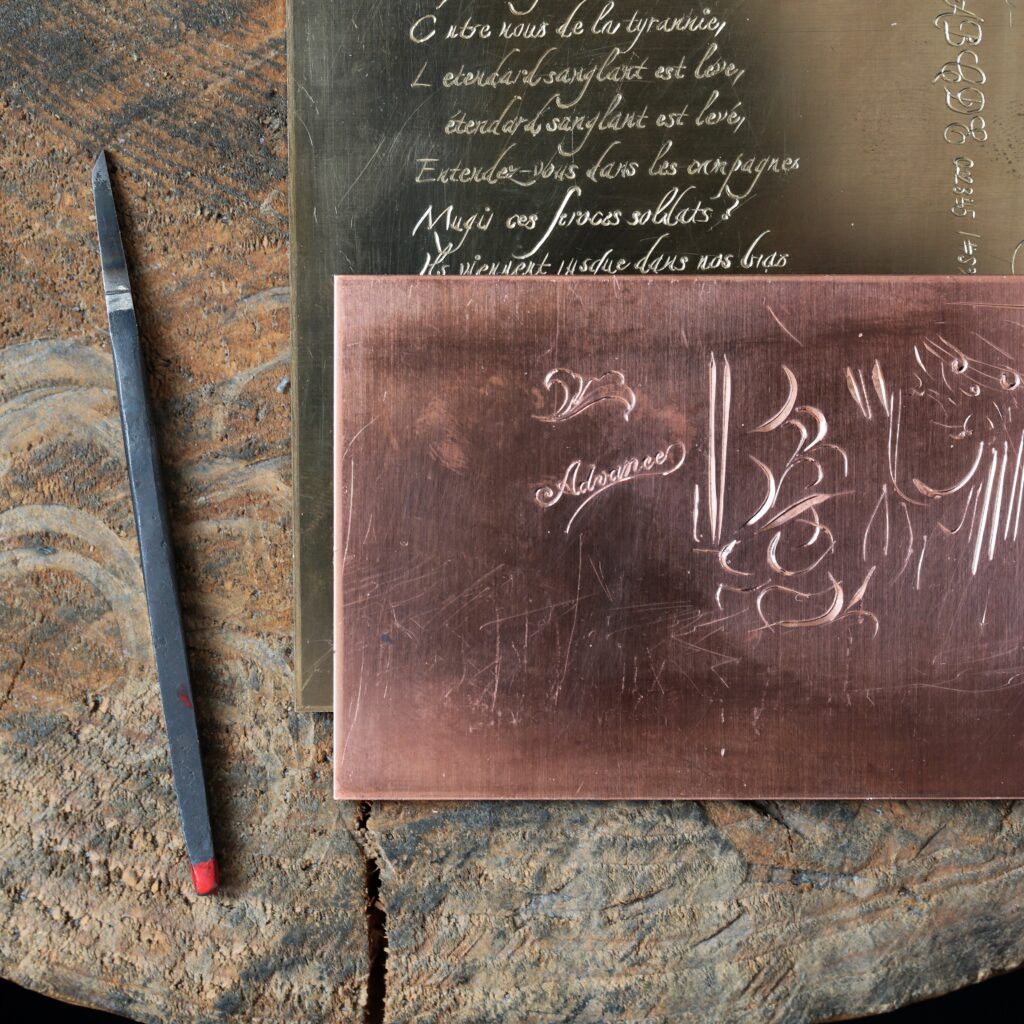 C ntre nous de la tyrannie,
L etendard sanglant est leve,
étendard, sanglant est levé,
Entendez-vous dans les campagnes
Mugir ces feroces soldats ?
Ils viennent jusque dans nos bras
Advance